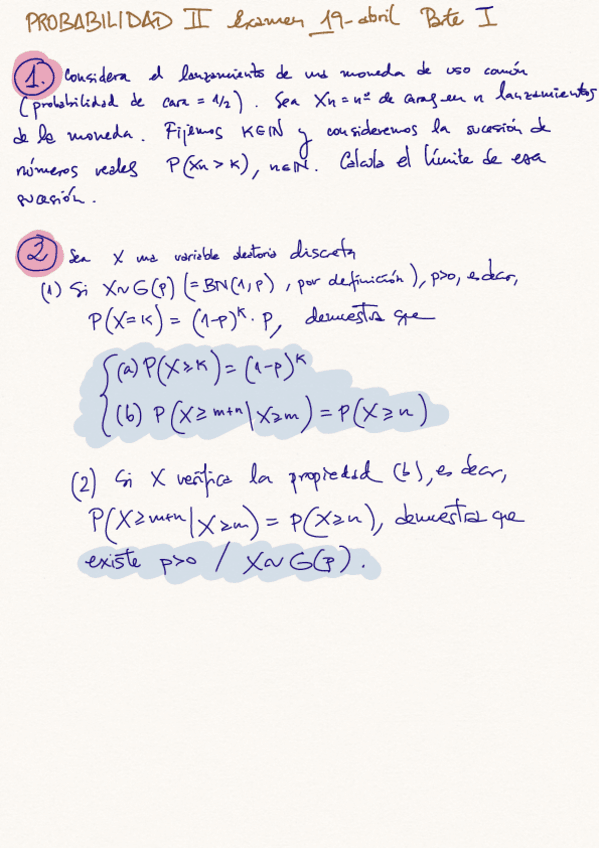 PROBABILIDAD II Examen 19-abril Parte I
1. Considera el lanzamiento de una moneda de uso común
(probabilidad de cara = 1/2). Sea Xn = nº de caras en n lanzamientos
de la moneda. Fijemos K∈ℕ y consideremos la sucesión de
números reales P(Xn > K), n∈ℕ. Calcula el límite de esa
sucesión.
2 Sea X una variable aleatoria discreta
(1) Si X~G(p) (=BN(1,p), por definición), p>0, es decir,
P(X=K) = (1-p)^K · p, demuestra que
(a) P(X≥K) = (1-p)^K
(b) P(X≥m+n | X≥m) = P(X≥n)
(2) Si X verifica la propiedad (b), es decir,
P(X≥m+n | X≥m) = P(X≥n), demuestra que
existe p>0 / X~G(p).